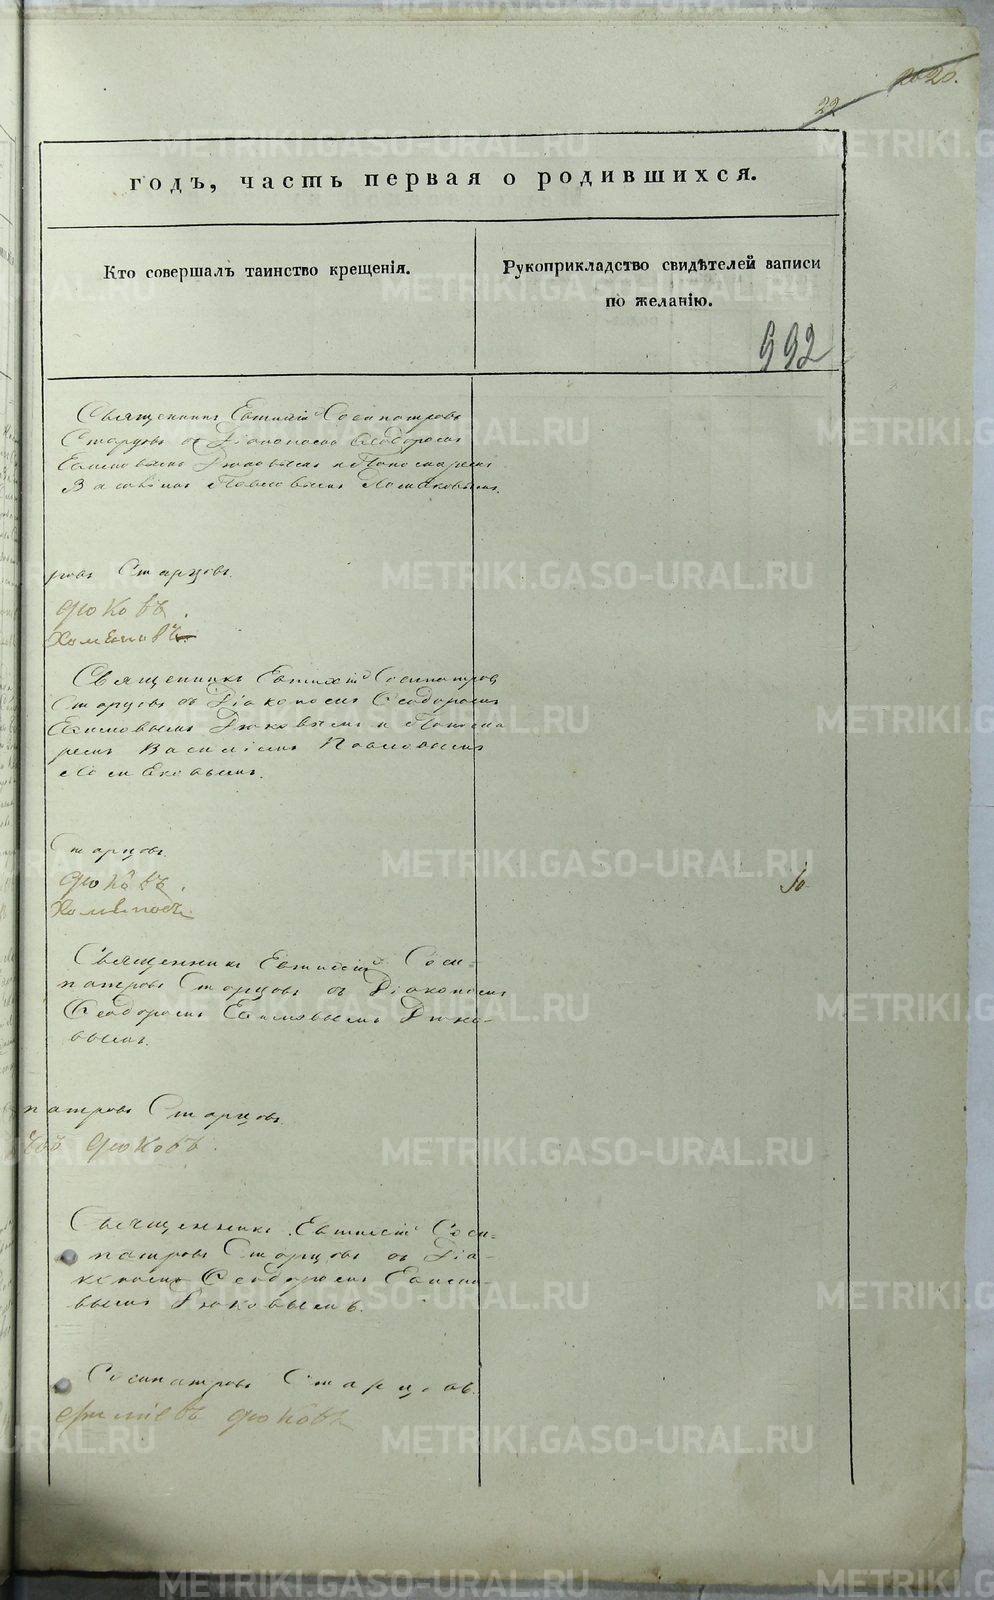 22
годъ, часть первая о родившихся.
Кто совершалъ таинство крещенія.
Рукоприкладство свидѣтелей записи
по желанію.
992
Священникъ Евтихій Сосипатровъ
Старцовъ съ Діакономъ Ѳеодоромъ
Дюковымъ и Пономаремъ
Павловымъ
ровъ Старцовъ.
Дюковъ.
Священникъ Евтихій Сосипатровъ
Старцовъ съ Діакономъ Ѳеодоромъ
Дюковымъ и Понома
ремъ Василіемъ Павловымъ
Старцовъ.
Дюковъ.
Священникъ Евтихій Соси-
патровъ Старцовъ съ Діакономъ
Ѳеодоромъ Дюко-
вымъ.
патровъ Старцовъ.
Дюковъ.
Священникъ Евтихій Соси-
патровъ Старцовъ съ Діа-
кономъ Ѳеодоромъ
вымъ Дюковымъ.
Сосипатровъ Старцовъ.
Дюковъ
METRIKI.GASO-URAL.RU